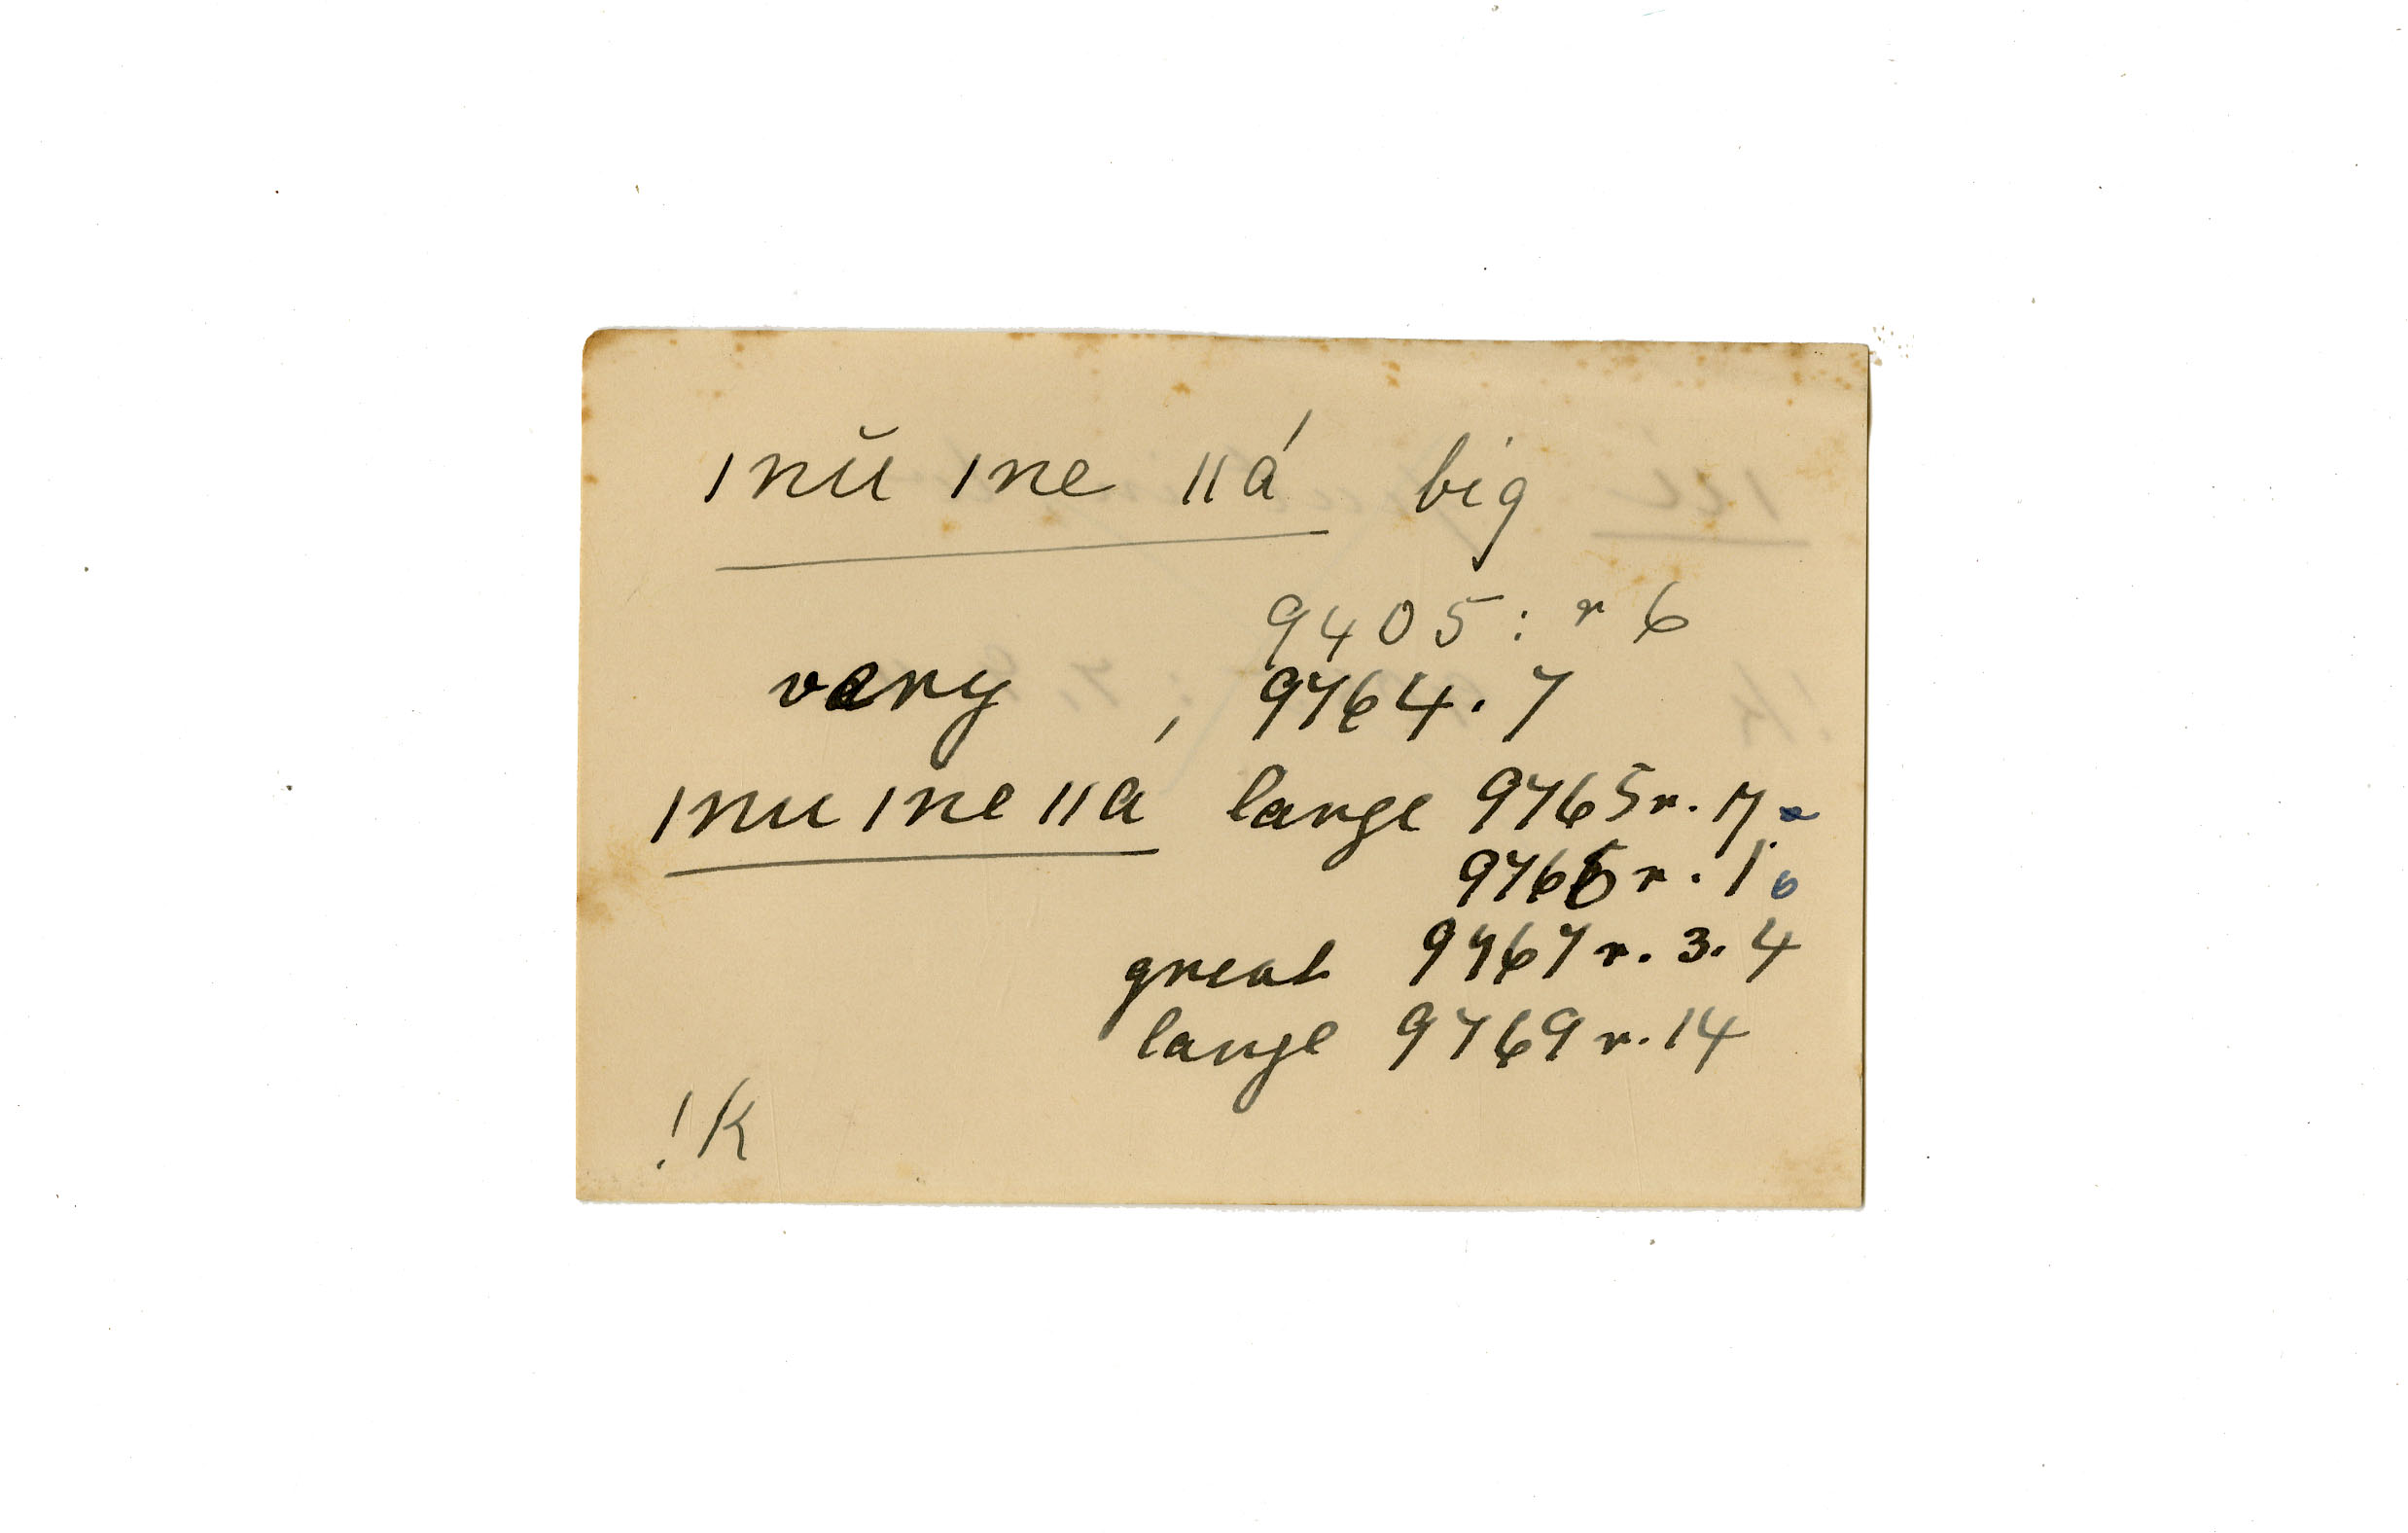 ǀnŭ ǀne ǁá big
9405: r 6
very, 9764.7
ǀnu ǀne ǁá large 9765 r. 17.
9766 r. 1
great 9767 r. 3. 4
large 9769 r. 14
!K